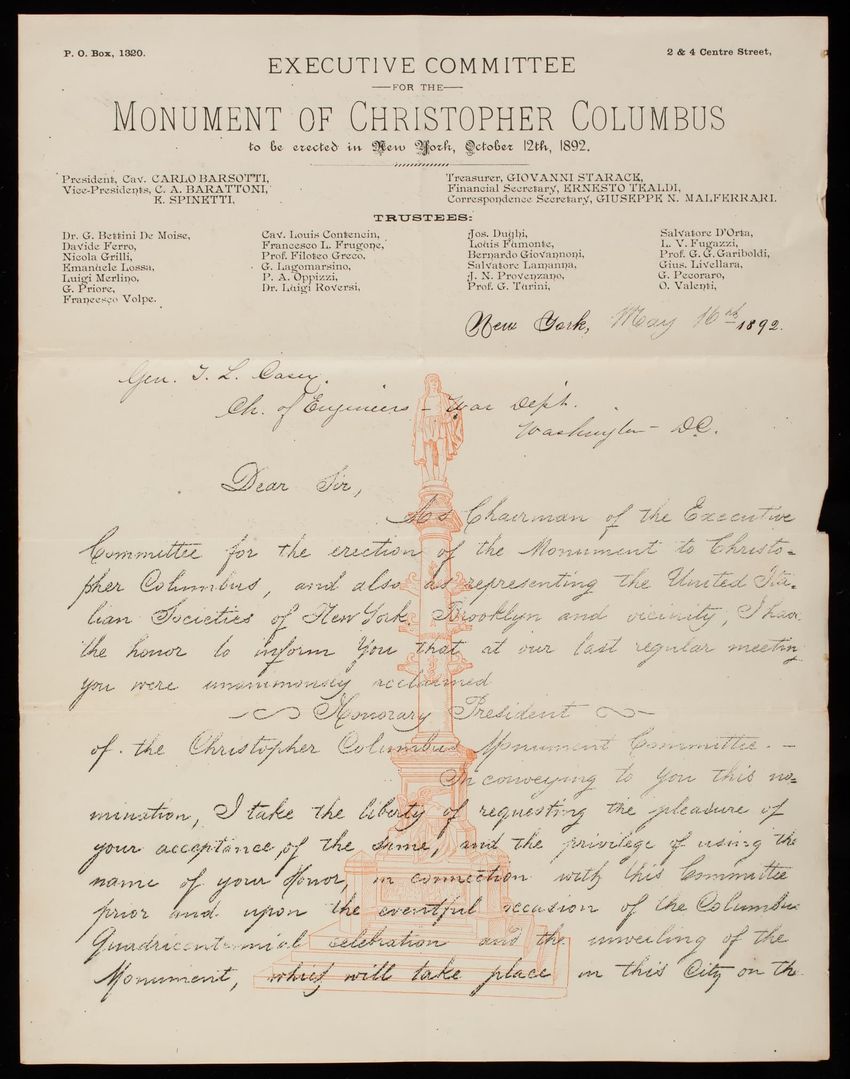 P. O. Box, 1320.
2 & 4 Centre Street,
EXECUTIVE COMMITTEE
FOR THE
MONUMENT OF CHRISTOPHER COLUMBUS
to be erected in New York, October 12th, 1892.
President, Cav. CARLO BARSOTTI,
Vice-Presidents, C. A. BARATTONI,
E. SPINETTI,
Treasurer, GIOVANNI STARACE,
Financial Secretary, ERNESTO TEALDI,
Correspondence Secretary, GIUSEPPE N. MALFERRARI.
TRUSTEES:
Dr. G. Bettini De Moise,
Davide Ferro,
Nicola Grilli,
Emanuele Lossa,
Luigi Merlino,
G. Priore,
Francesco Volpe.
Cav. Louis Contencin,
Francesco L. Frugone,
Prof. Filoteo Greco,
G. Lagomarsino,
P. A. Oppizzi,
Dr. Luigi Roversi,
Jos. Dughi,
Louis Fumonte,
Bernardo Giovannoni,
Salvatore Lamanna,
J. N. Provenzano,
Prof. G. Turini,
Salvatore D'Orta,
L. V. Fugazzi,
Prof. G. G. Gariboldi,
Gius. Livellara,
G. Pecoraro,
O. Valenti,
New York, May 16th 1892.
Gen. T. L. Casey.
Ch. of Engineers - War Dep't.
Washington - D.C.
Dear Sir,
As Chairman of the Executive
Committee for the erection of the Monument to Christo=
pher Columbus, and also as representing the United Ita-
lian Societies of New York, Brooklyn and vicinity, I have
the honor to inform You that at our last regular meeting
you were unanimously acclaimed
Honorary President
of the Christopher Columbus Monument Committee. -
In conveying to You this no=
mination, I take the liberty of requesting the pleasure of
your acceptance of the same, and the privilege of using the
name of your Honor, in connection with this Committee
prior and upon the eventful occasion of the Columbus
Quadricentennial celebration and the unveiling of the
Monument, which will take place in this City on th